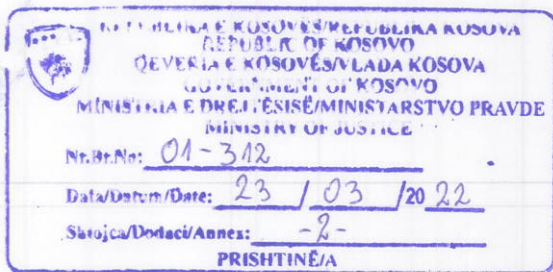 REPUBLIKA E KOSOVËS/REPUBLIKA KOSOVA
REPUBLIC OF KOSOVO
QEVERIA E KOSOVËS/VLADA KOSOVA
GOVERNMENT OF KOSOVO
MINISTRIA E DREJTËSISË/MINISTARSTVO PRAVDE
MINISTRY OF JUSTICE
Nr.Br.No: 01-312
Data/Datum/Date: 23 / 03 /20 22
Shtojca/Dodaci/Annex: -2-
PRISHTINË/A